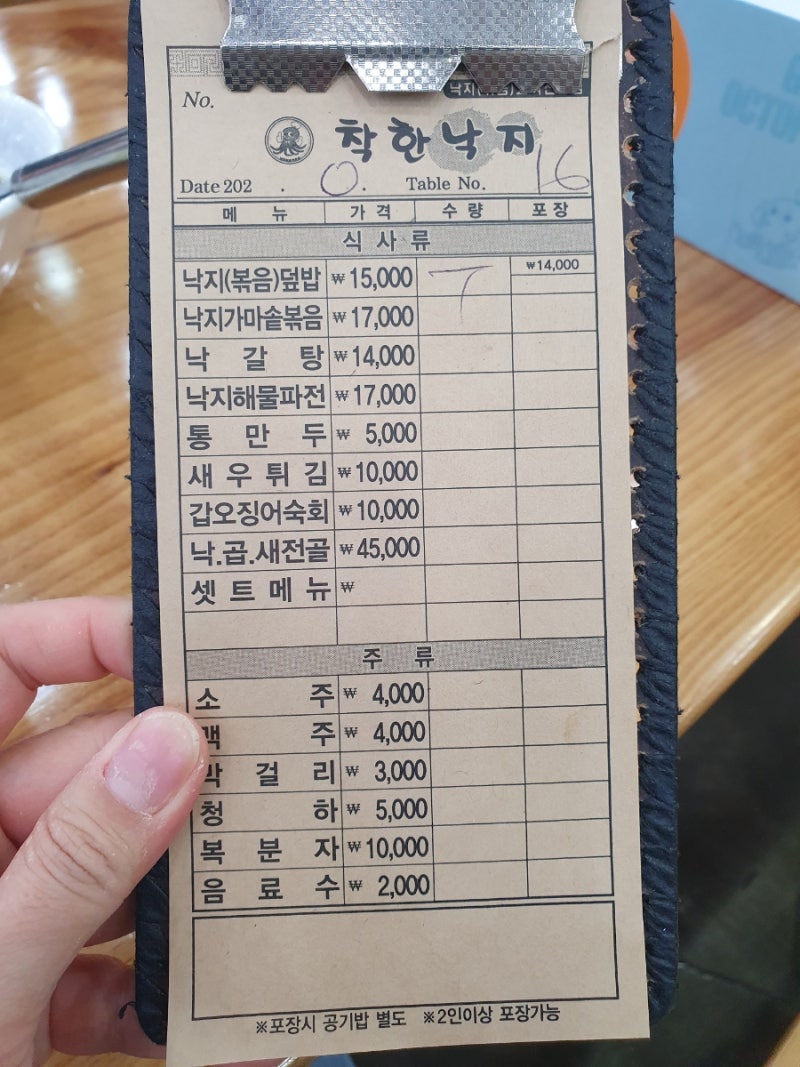 No.
착한낙지
Date 202 . 0. Table No. 16
메 뉴 가 격 수 량 포 장
식 사 류
낙지(볶음)덮밥 ₩15,000 7 ₩14,000
낙지가마솥볶음 ₩17,000
낙 갈 탕 ₩14,000
낙지해물파전 ₩17,000
통 만 두 ₩ 5,000
새 우 튀 김 ₩10,000
갑오징어숙회 ₩10,000
낙.곱.새전골 ₩45,000
셋 트 메 뉴 ₩
주 류
소 주 ₩ 4,000
맥 주 ₩ 4,000
막 걸 리 ₩ 3,000
청 하 ₩ 5,000
복 분 자 ₩10,000
음 료 수 ₩ 2,000
※포장시 공기밥 별도 ※2인이상 포장가능